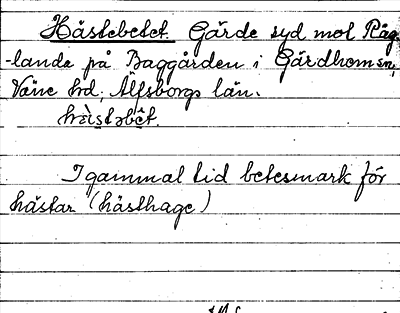 Hästebetet. Gärde syd mot Råg
-landa på Baggården i Gärdhems sn,
Väne hd, Älfsborgs län.
hæ̀stəbêt.
I gammal tid betesmark för
hästar (hästhage)